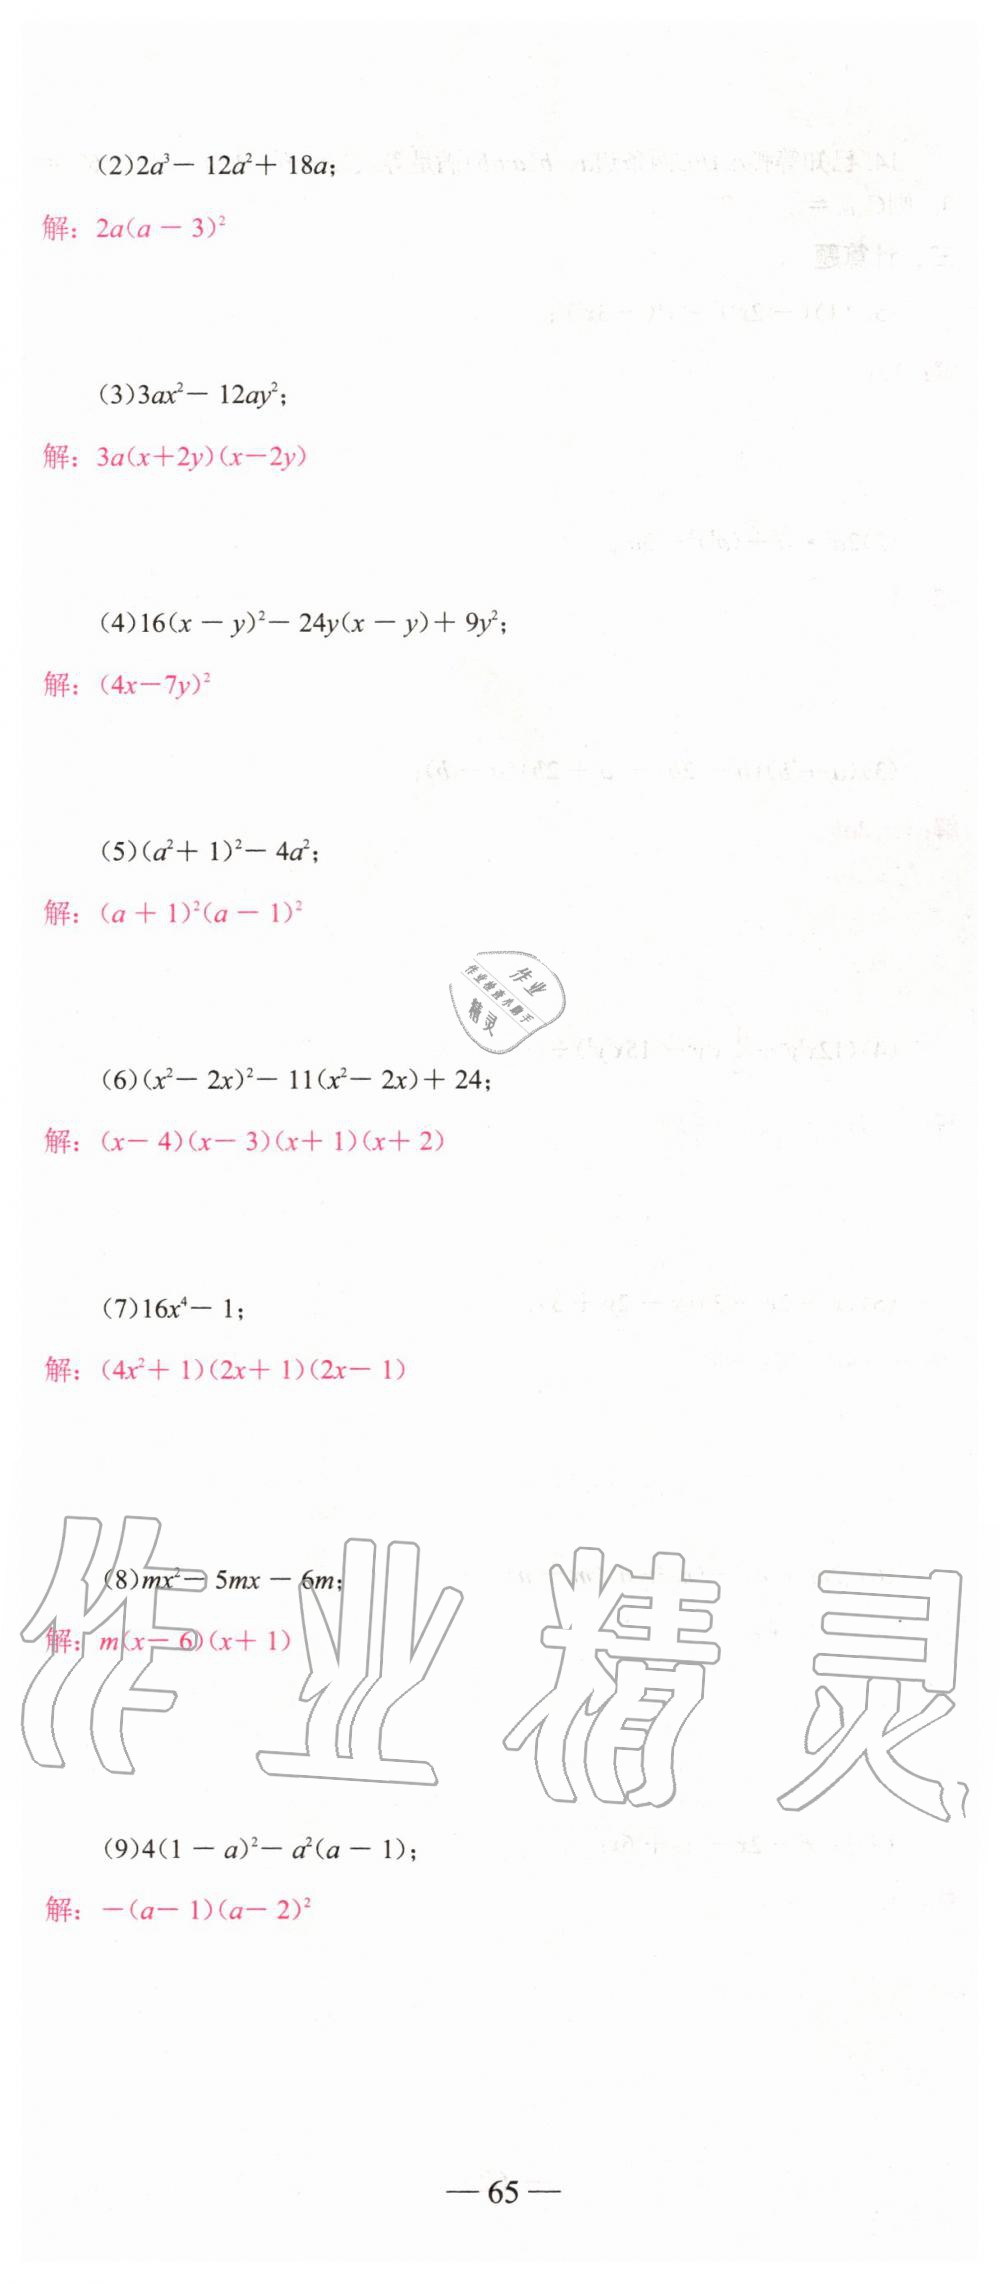 (2)2a³－12a²＋18a；
解：2a(a－3)²
(3)3ax²－12ay²；
解：3a(x＋2y)(x－2y)
(4)16(x－y)²－24y(x－y)＋9y²；
解：(4x－7y)²
(5)(a²＋1)²－4a²；
解：(a＋1)²(a－1)²
作业
作业检查小助手
精灵
(6)(x²－2x)²－11(x²－2x)＋24；
解：(x－4)(x－3)(x＋1)(x＋2)
(7)16x⁴－1；
解：(4x²＋1)(2x＋1)(2x－1)
(8)mx²－5mx－6m；
解：m(x－6)(x＋1)
作业精灵
(9)4(1－a)²－a²(a－1)；
解：－(a－1)(a－2)²
— 65 —